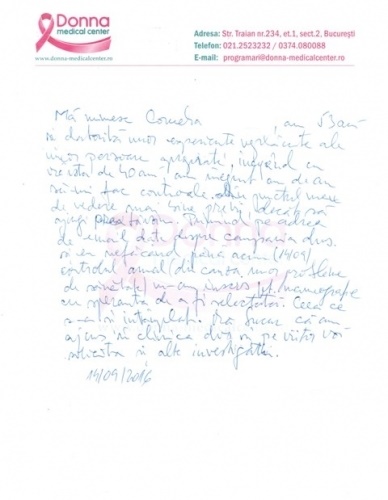 Donna
medical center
www.donna-medicalcenter.ro
Adresa: Str. Traian nr.234, et.1, sect.2, București
Telefon: 021.2523232 / 0374.080088
E-mail: programari@donna-medicalcenter.ro
Mă numesc Cornelia , am 53 ani
și datorită unor experiențe neplăcute ale
unor persoane apropiate, începând cu
vârsta de 40 ani am început an de an
să-mi fac controale. Din punctul meu
de vedere mai bine previi decât să
ajungi prea târziu. Primind pe adresa
de email date despre campania dvs.
și eu nefăcând până acum (14/09)
controlul anual (din cauza unor probleme
de sănătate) m-am înscris pt. mamografie
cu speranța de a fi selectată. Ceea ce
s-a și întâmplat. Mă bucur că am
ajuns în clinica dvs și pe viitor voi
solicita și alte investigații.
14/09/2016
Donna